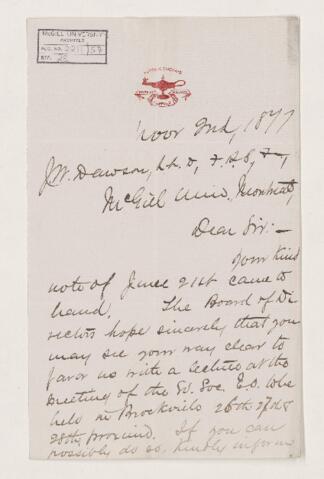 McGILL UNIVERSITY
ARCHIVES
ACC. NO. 2211
REF.
1877
J.W. Dawson, LL.D., F.R.S., &c.,
McGill Univ., Montreal,
Dear Sir:—
Your kind
note of June 21st came to
hand. The Board of Di
rectors hope sincerely that you
may see your way clear to
favor us with a lecture at the
meeting of the Ed. Soc. E.O. to be
held in Brockville 26th 27th &
28th proximo. If you can
possibly do so, kindly inform